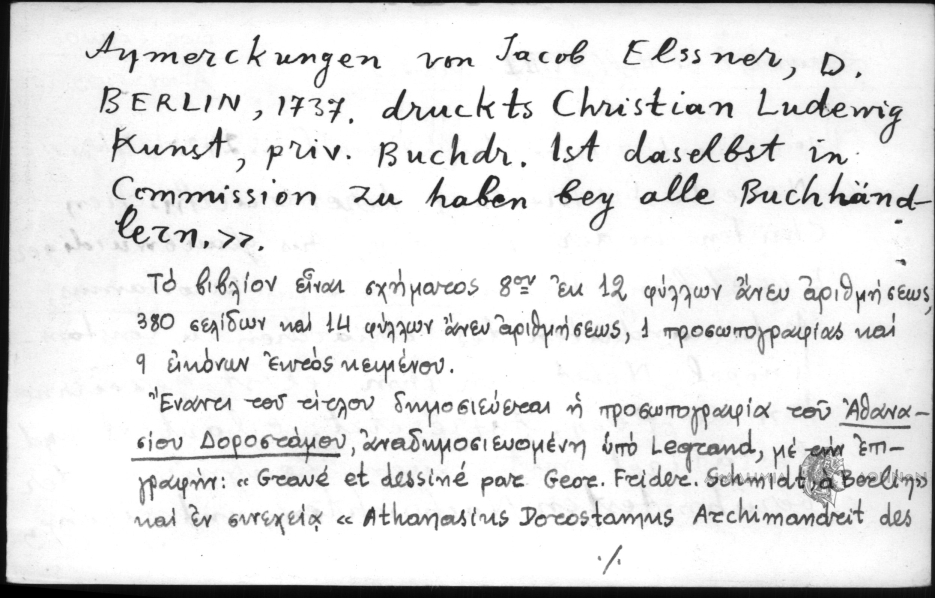 Aymerckungen von Jacob Elssner, D.
BERLIN, 1737. druckts Christian Ludewig
Kunst, priv. Buchdr. Ist daselbst in
Commission zu haben bey alle Buchhänd-
lern.>>.
Τό βιβλίον εἶναι σχήματος 8ον ἐκ 12 φύλλων ἄνευ ἀριθμήσεως,
380 σελίδων καί 14 φύλλων ἄνευ ἀριθμήσεως, 1 προσωπογραφίας καί
9 εἰκόνων ἐντός κειμένου.
Ἔναντι τοῦ τίτλου δημοσιεύεται ἡ προσωπογραφία τοῦ Ἀθανα-
σίου Δοροστάμου, ἀναδημοσιευομένη ὑπό Legrand, μέ τήν ἐπι-
γραφήν: « Gravé et dessiné par Geor. Frider. Schmidt, a Berlin»
καί ἐν συνεχείᾳ « Athanasius Dorostamus Archimandrit des
./.